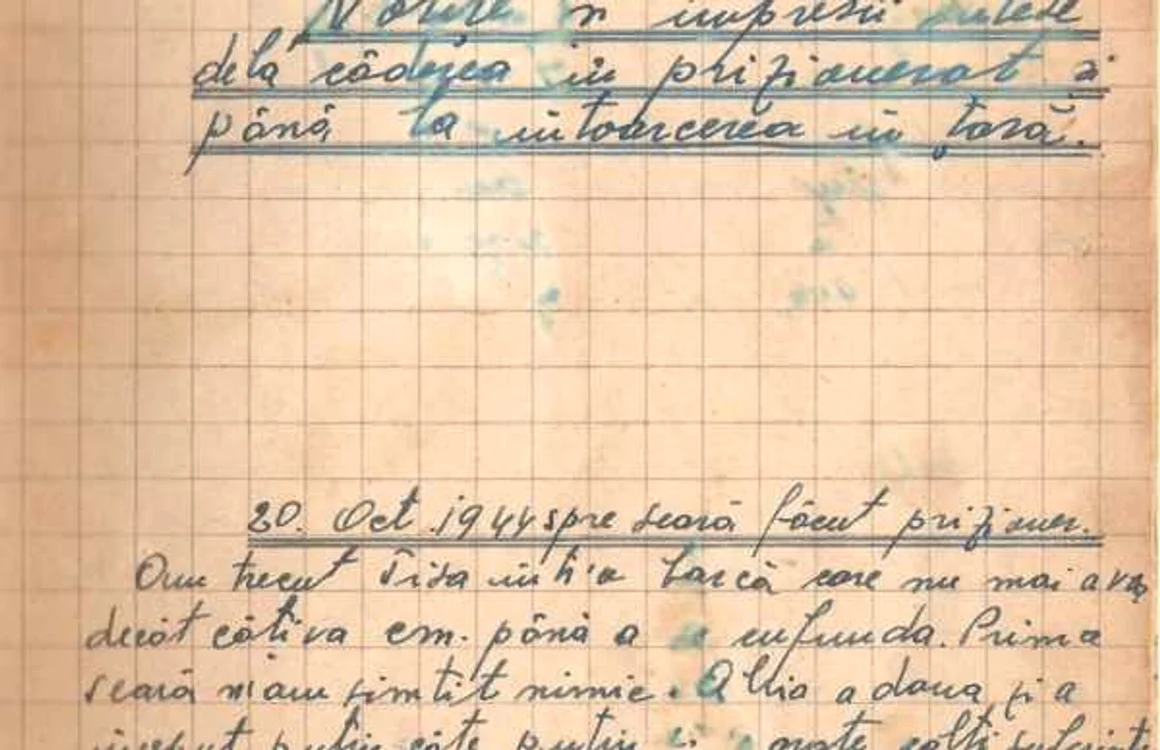 Notițe și impresii culese
dela căderea in prizonerat și
până la intoarcerea in țară.
20. Oct. 1944 spre seară făcut prizoner.
Am trecut Tisa intr'o barcă care nu mai avea
decât câtiva cm. până a se cufunda. Prima
seară n'am simtit nimic. Abia a doua zi a
inceput putin câte putin